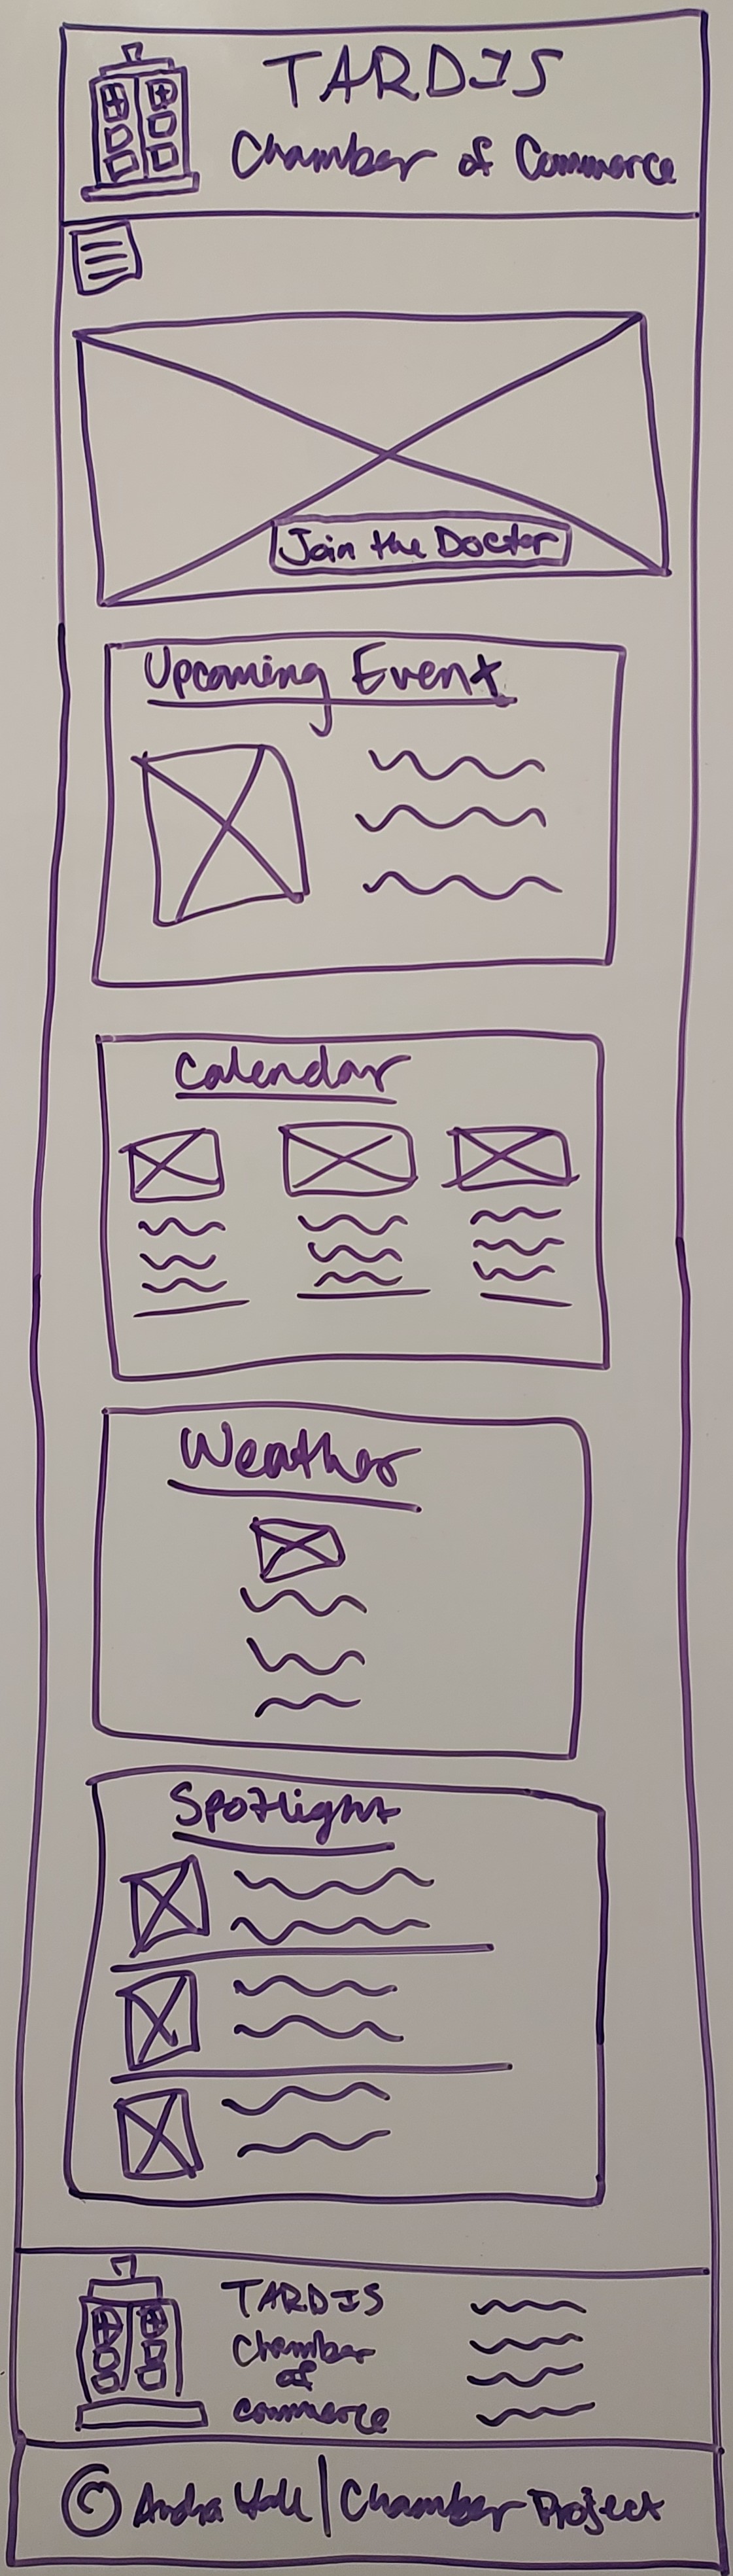 TARDIS
Chamber of Commerce
Join the Doctor
Upcoming Event
Calendar
Weather
Spotlight
TARDIS
Chamber
of
Commerce
© Andra Hall | Chamber Project